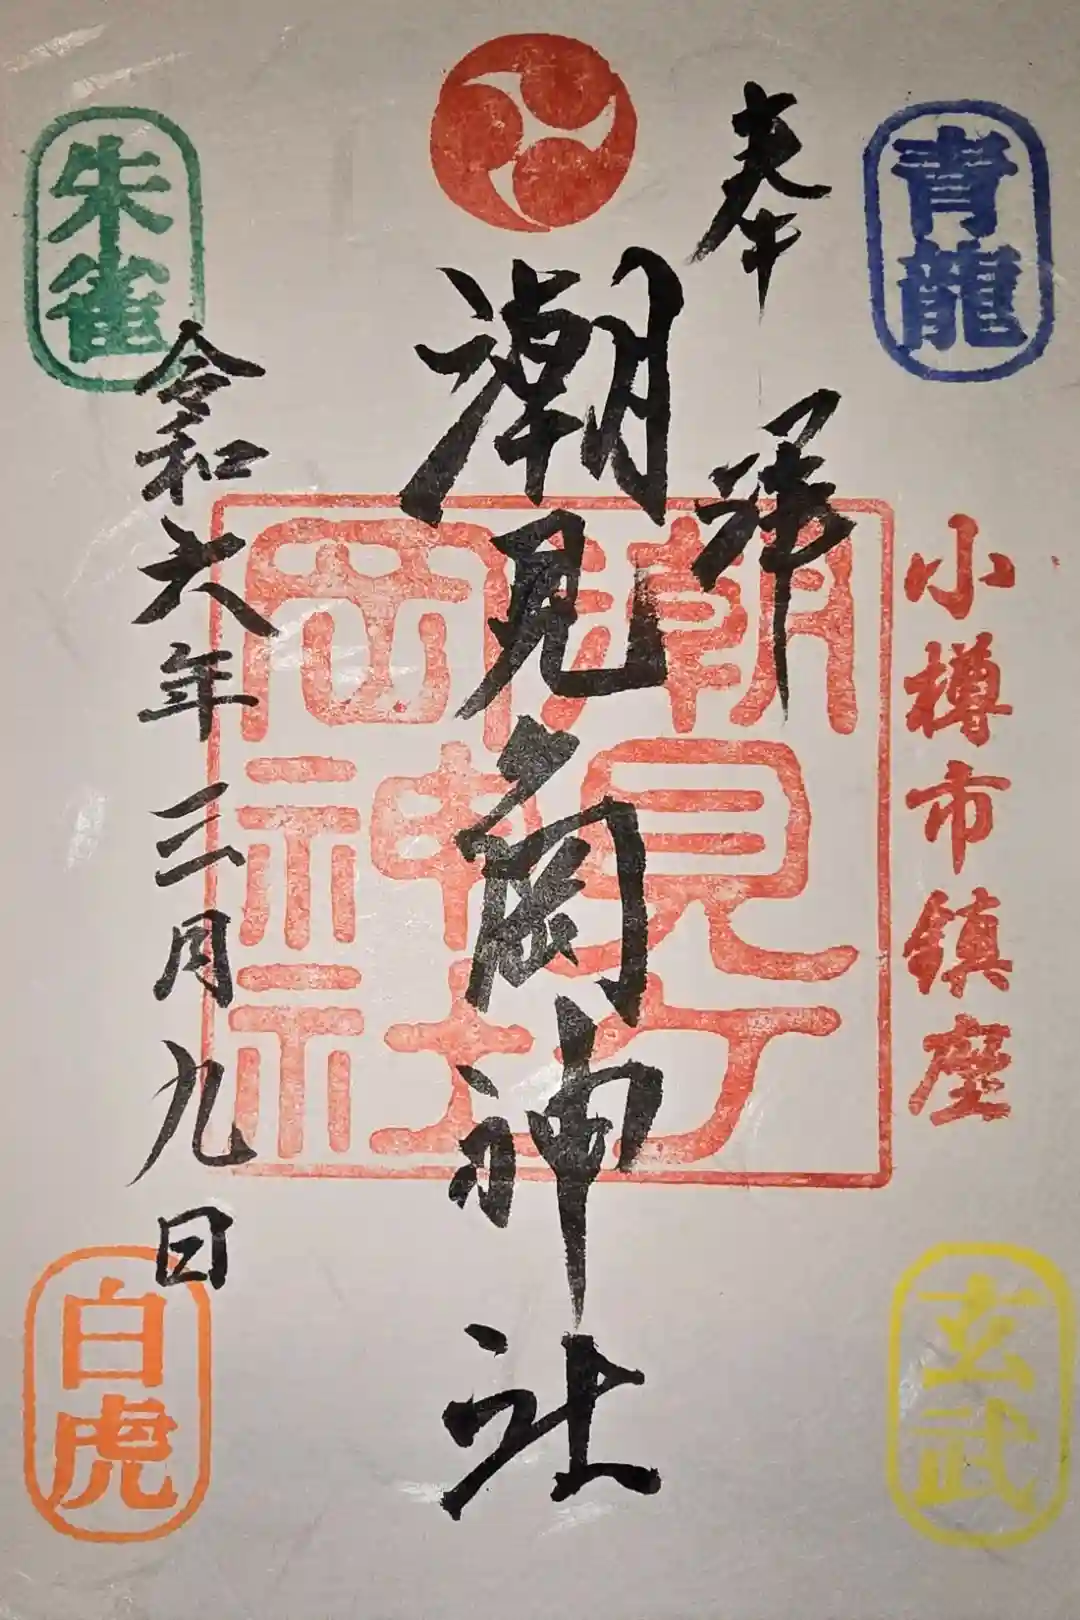 青龍
小樽市鎮座
玄武
奉拝
潮見ヶ岡神社
潮見ヶ
岡神社
朱雀
令和六年三月九日
白虎